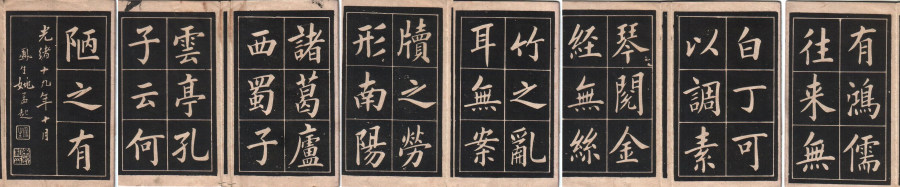 有鴻儒
往来無
白丁可
以調素
琴閱金
經無絲
竹之亂
耳無案
牘之勞
形南陽
諸葛廬
西蜀子
雲亭孔
子云何
陋之有
光緒十九年十月
鳳生姚孟起